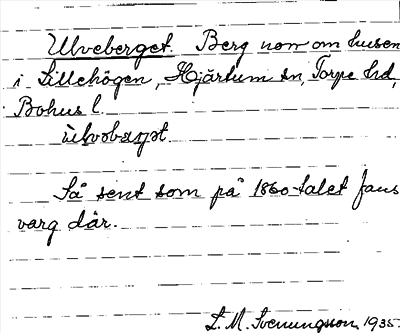 Ulveberget. Berg norr om husen
i Lillehögen, Hjärtum sn, Torpe hd,
Bohus l.
Så sent som på 1860-talet fans
varg där.
L. M. Svenungsson 1935.